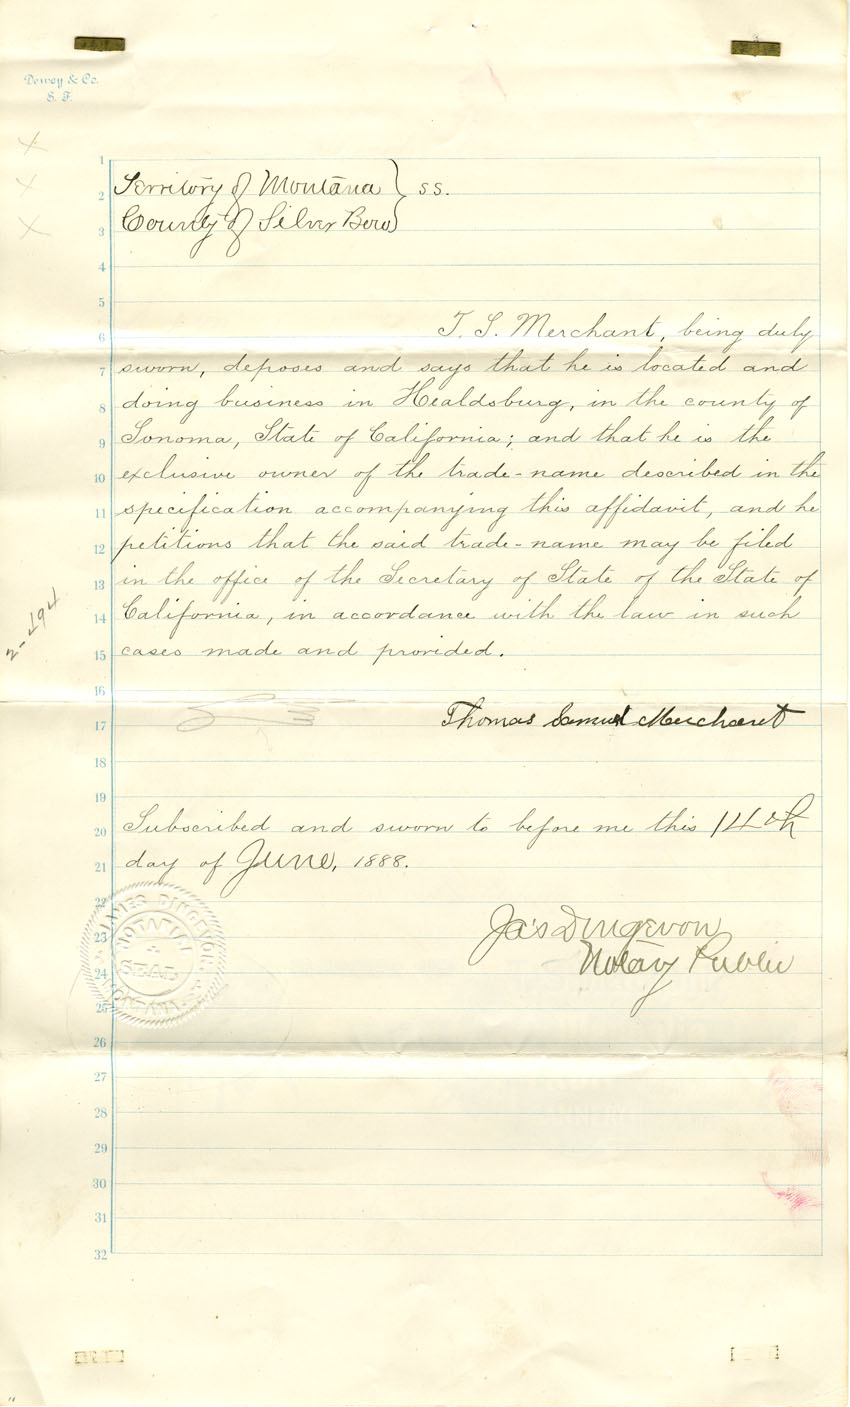 Dewey & Co.
S. F.
1
Territory of Montana } ss.
2
County of Silver Bow
3
4
5
T. S. Merchant, being duly
6
sworn, deposes and says that he is located and
7
doing business in Healdsburg, in the county of
8
Sonoma, State of California; and that he is the
9
exclusive owner of the trade-name described in the
10
specification accompanying this affidavit, and he
11
petitions that the said trade-name may be filed
12
in the office of the Secretary of State of the State of
13
California, in accordance with the law in such
14
cases made and provided.
15
16
Thomas Samuel Merchant
17
18
19
Subscribed and sworn to before me this 14th
20
day of June, 1888.
21
22
Jas Dingevon
23
Notary Public
24
25
26
27
28
29
30
31
32
JAMES DINGEVON
NOTARIAL
SEAL
MONTANA
2-494